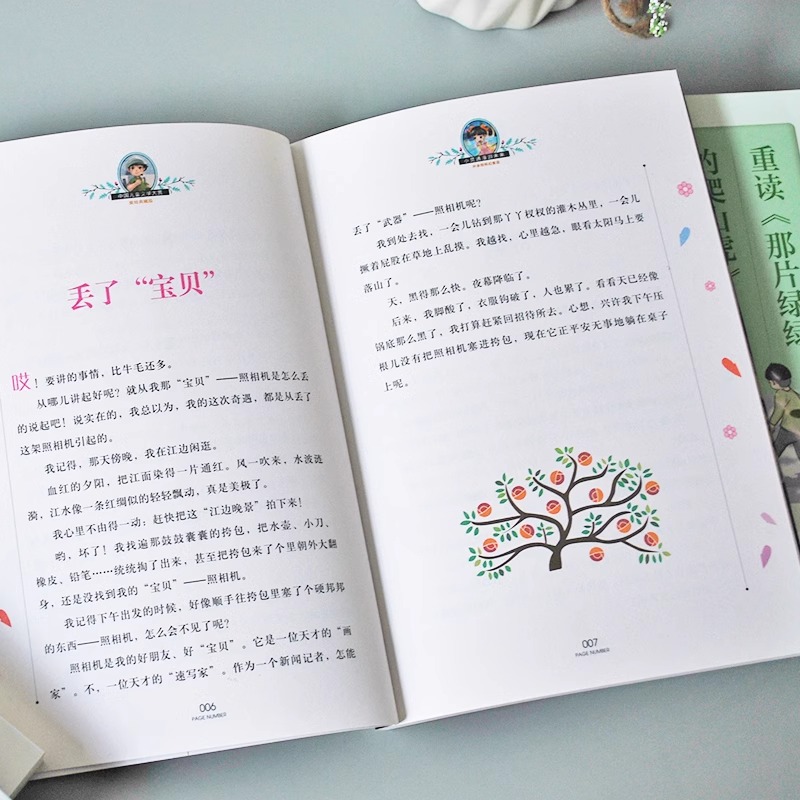 中国儿童文学大赏
丢了“宝贝”
哎！要讲的事情，比牛毛还多。
从哪儿讲起好呢？就从我那“宝贝”——照相机是怎么丢
的说起吧！说实在的，我总以为，我的这次奇遇，都是从丢了
这架照相机引起的。
我记得，那天傍晚，我在江边闲逛。
血红的夕阳，把江面染得一片通红。风一吹来，水波涟
漪，江水像一条红绸似的轻轻飘动，真是美极了。
我心里不由得一动：赶快把这“江边晚景”拍下来！
哟，坏了！我找遍那鼓鼓囊囊的挎包，把水壶、小刀、
橡皮、铅笔……统统掏了出来，甚至把挎包来了个里朝外大翻
身，还是没找到我的“宝贝”——照相机。
我记得下午出发的时候，好像顺手往挎包里塞了个硬邦邦
的东西——照相机，怎么会不见了呢？
照相机是我的好朋友、好“宝贝”。它是一位天才的“画
家”。不，一位天才的“速写家”。作为一个新闻记者，怎能
006
PAGE NUMBER
丢了“武器”——照相机呢？
我到处去找，一会儿钻到那丫丫杈杈的灌木丛里，一会儿
撅着屁股在草地上乱摸。我越找，心里越急，眼看太阳马上要
落山了。
天，黑得那么快。夜幕降临了。
后来，我脚酸了，衣服钩破了，人也累了。看看天已经像
锅底那么黑了，我打算赶紧回招待所去。心想，兴许我下午压
根儿没有把照相机塞进挎包，现在它正平安无事地躺在桌子
上呢。
007
PAGE NUMBER
重读《那片绿绿
的爬山虎》